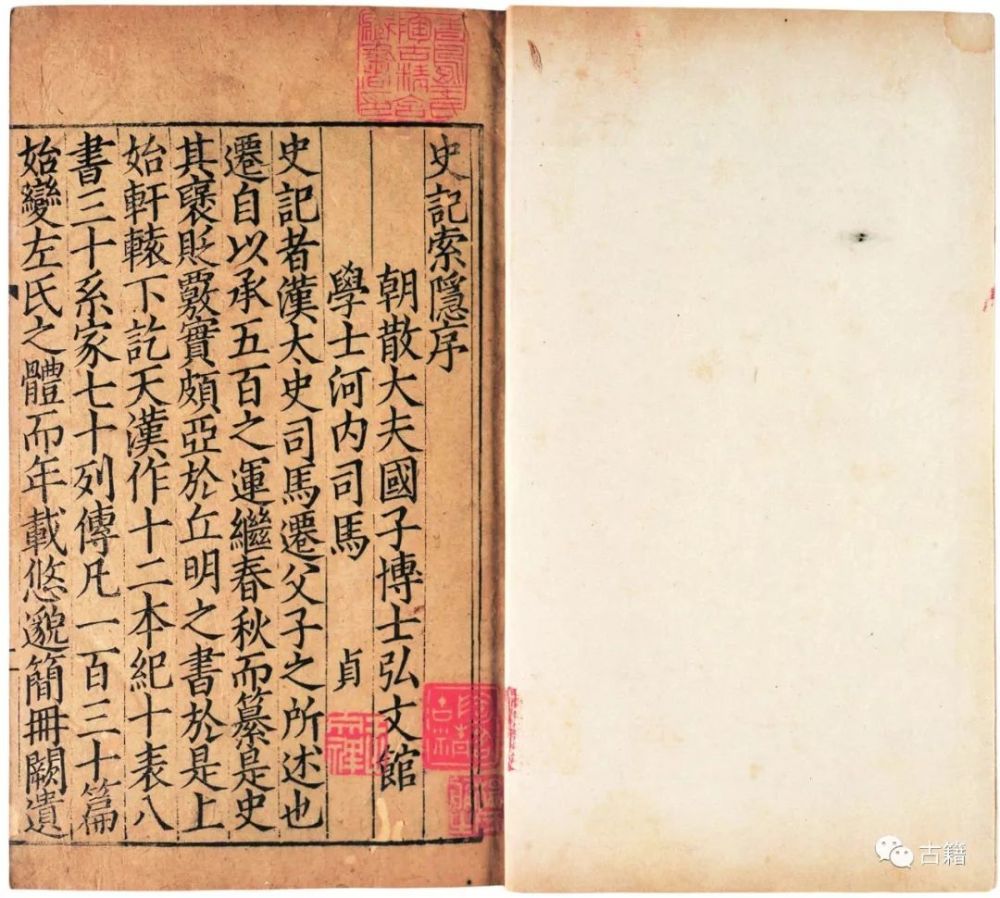 史記索隱序
朝散大夫國子博士弘文館
學士河内司馬 貞
史記者漢太史司馬遷父子之所述也
遷自以承五百之運繼春秋而纂是史
其襃貶覈實頗亞於丘明之書於是上
始軒轅下訖天漢作十二本紀十表八
書三十系家七十列傳凡一百三十篇
始變左氏之體而年載悠邈簡冊闕遺
古籍